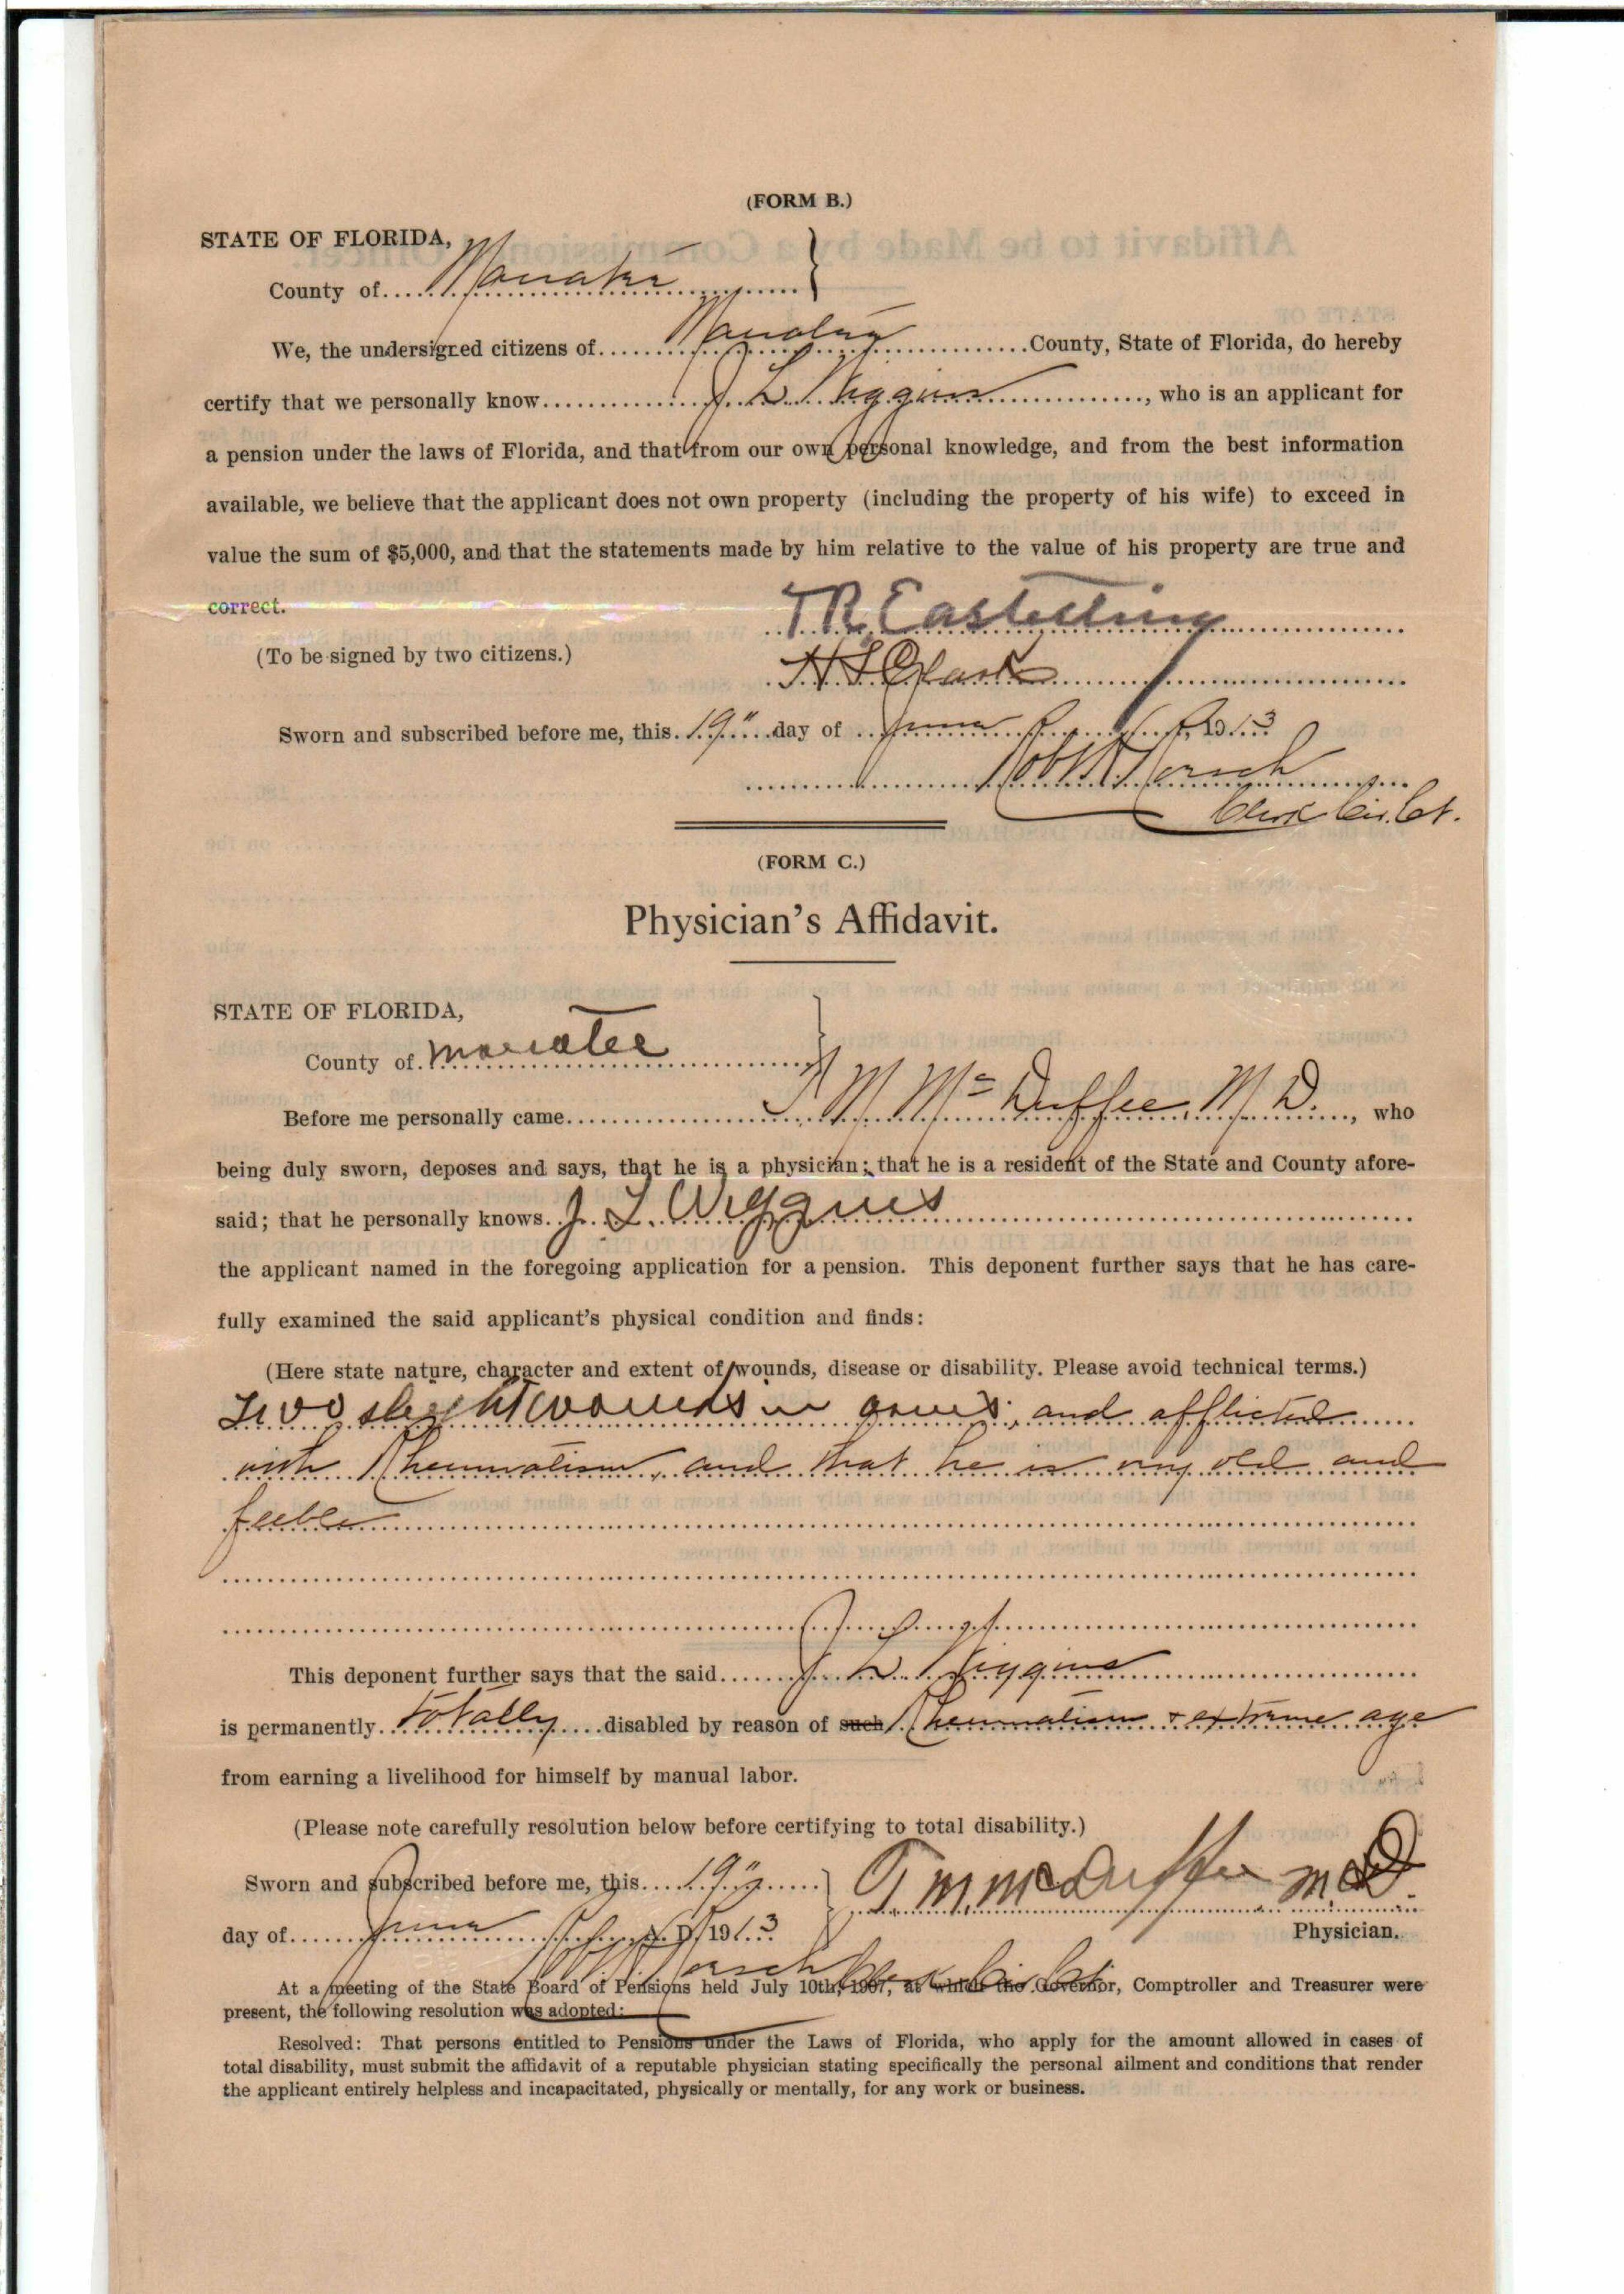 (FORM B.)
STATE OF FLORIDA,
County of Manatee
We, the undersigned citizens of Manatee County, State of Florida, do hereby
certify that we personally know J L Wiggins, who is an applicant for
a pension under the laws of Florida, and that from our own personal knowledge, and from the best information
available, we believe that the applicant does not own property (including the property of his wife) to exceed in
value the sum of $5,000, and that the statements made by him relative to the value of his property are true and
correct.
T R Easterling
(To be signed by two citizens.)
H S Glazier
Sworn and subscribed before me, this 19" day of June A. D. 1913
Robt H. Roesch
Clerk Cir. Ct.
(FORM C.)
Physician's Affidavit.
STATE OF FLORIDA,
County of Manatee
Before me personally came T M McDuffee, M. D., who
being duly sworn, deposes and says, that he is a physician; that he is a resident of the State and County afore-
said; that he personally knows J. L. Wiggins
the applicant named in the foregoing application for a pension. This deponent further says that he has care-
fully examined the said applicant's physical condition and finds:
(Here state nature, character and extent of wounds, disease or disability. Please avoid technical terms.)
Two slight wounds in arms, and afflicted
with Rheumatism, and that he is very old and
feeble
This deponent further says that the said J L Wiggins
is permanently totally disabled by reason of such Rheumatism & extreme age
from earning a livelihood for himself by manual labor.
(Please note carefully resolution below before certifying to total disability.)
Sworn and subscribed before me, this 19" T M McDuffee M.D.
day of June A. D. 1913 Physician.
Clerk Cir. Ct.
At a meeting of the State Board of Pensions held July 10th, 1907, at which the Governor, Comptroller and Treasurer were
present, the following resolution was adopted:
Resolved: That persons entitled to Pensions under the Laws of Florida, who apply for the amount allowed in cases of
total disability, must submit the affidavit of a reputable physician stating specifically the personal ailment and conditions that render
the applicant entirely helpless and incapacitated, physically or mentally, for any work or business.